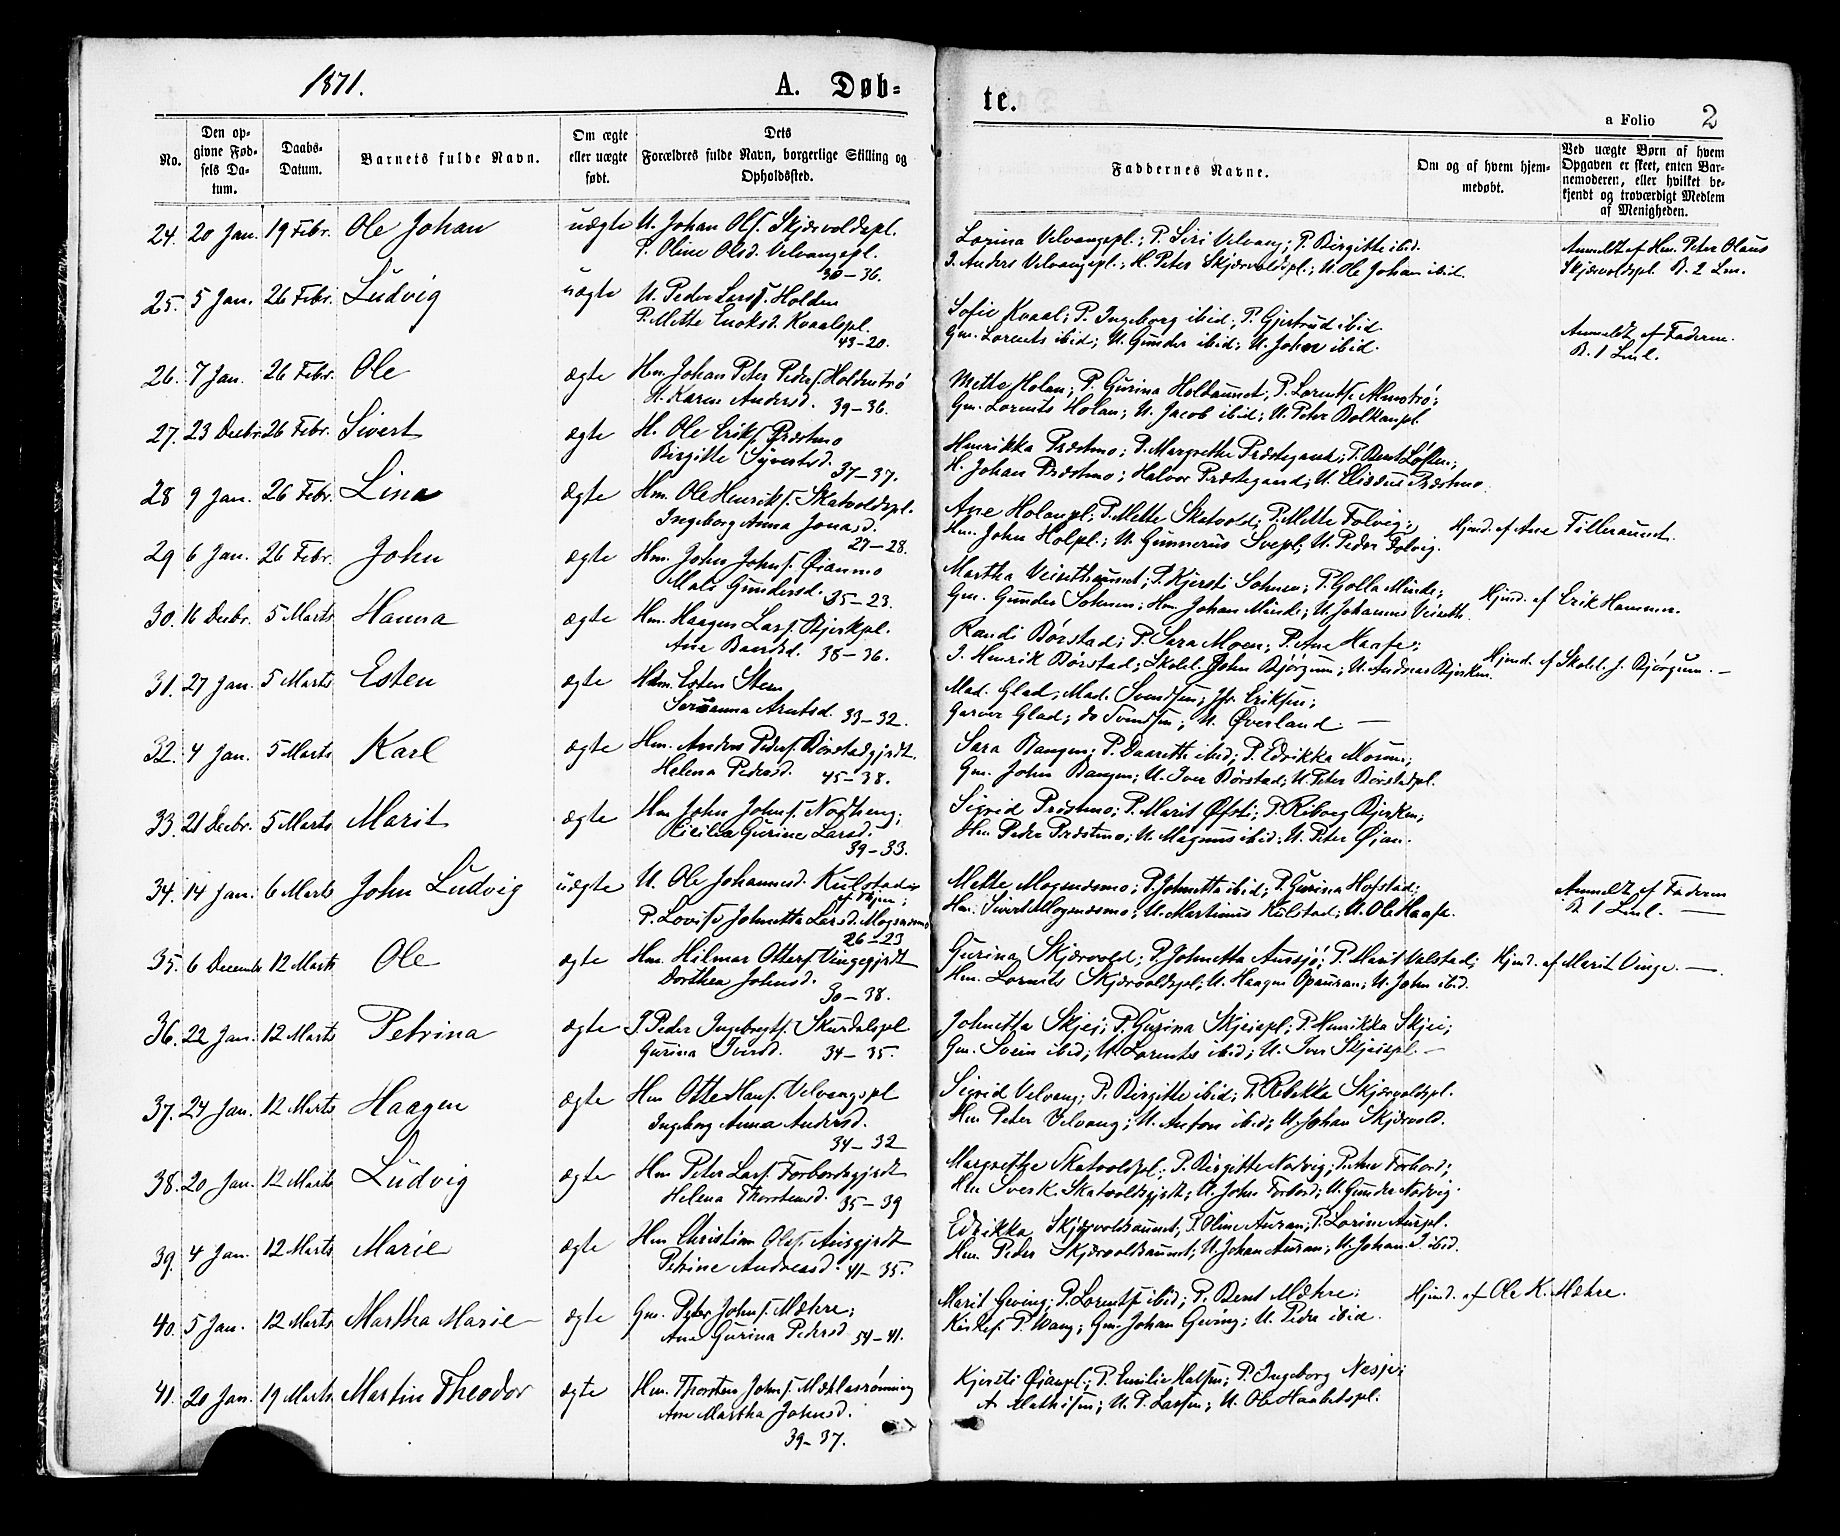 1871.
A. Døb-
te.
a Folio 2
No.
Den op-
givne Fød-
sels Da-
tum.
Daabs-
Datum.
Barnets fulde Navn.
Om ægte
eller uægte
født.
Dets
Forældres fulde Navn, borgerlige Stilling og
Opholdssted.
Faddernes Navne.
Om og af hvem hjem-
medøbt.
Ved uægte Børn af hvem
Opgaven er skeet, enten Bar-
nemoderen, eller hvilket be-
kjendt og troværdigt Medlem
af Menigheden.
24. 20 Jan. 19 Febr. Ole Johan uægte U. Johan Ols. Skjærvoldspl.
P. Oline Olsd. Velvangspl.
30-36.
Lorina Velvangspl.; P. Siri Velvang; P. Birgitte ibid.
I. Anders Velvangspl.; H. Peter Skjærvoldspl.; U. Ole Johan ibid.
Anmeldt af Hm. Peter Olaus
Skjærvoldspl. B. 2 Lm.
25. 5 Jan. 26 Febr. Ludvig uægte U. Peder Larss. Holden
P. Mette Enoksd. Kvaalspl.
43-20.
Sofie Kvaal; P. Ingeborg ibid; P. Gjertrud ibid
Gm. Lorents ibid; U. Gunder ibid; U. John ibid.
Anmeldt af Faderen.
B. 1 Lml.
26. 7 Jan. 26 Febr. Ole ægte Hm. Johan Peter Peders. Holdmstrø
P. Karen Andersd. 39-36.
Mette Holan; P. Gurina Holbaunet; P. Lorents. Almstrø;
Gm. Lorents Holan; U. Jacob ibid; U. Peter Bolkanpl.
27. 23 Decbr. 26 Febr. Sivert ægte H. Ole Eriks. Præstmo
Birgitte Sivertsd. 37-37.
Henrikka Præstmo; P. Margrethe Præstegaard; P. Berit Løften;
H. Johan Præstmo; Halvor Præstegaard; U. Elisæus Præstmo.
28 9 Jan. 26 Febr. Lina ægte Hm. Ole Henriks. Skatvoldspl.
Ingeborg Anna Jonasd.
27-28.
Ane Holanpl; P. Mette Skatvold; P. Mette Folvig;
Hm. John Holpl.; U. Gunnerus Svepl; U. Peder Folvig.
Hjmd. af Ane Tilleraunet.
29 6 Jan. 26 Febr. John ægte Hm. John Johns. Øianmo
Mali Gundersd. 35-23.
Martha Veisethaunet; P. Kjersti Sohnen; P. Golla Minde;
Gm. Gunder Sohnen; Hm. Johan Minde; U. Johannes Veiseth.
Hjmd. af Erik Hammer.
30. 16 Decbr. 5 Marts Hanna ægte Hm. Haagen Lars. Bjerkpl.
Ane Bardsd. 38-36.
Randi Børstad; P. Sara Moen; P. Ane Haafe;
I. Henrik Børstad; Skolel. John Bjørgum; U. Andreas Bjerken.
Hjmd. af Skolel. J. Bjørgum. —
31. 27 Jan. 5 Marts Esten ægte Hm. Esten Sten
Susanna Arntsd. 33-32.
Mad. Glad; Mad. Svendsen; Jfr. Eriksen;
Garver Glad; do Svendsen; U. Øverland. —
32. 4 Jan. 5 Marts Karl ægte Hm. Anders Peders. Børstadgjrdt.
Helena Pedersd. 45-38.
Sara Bangen; P. Daareth ibid; P. Edrikka Moum;
Gm. John Bangen; U. Iver Børstad; U. Peter Børstadpl.
33. 21 Decbr. 5 Marts Marit ægte Hm John Johns. Nodheng;
Cicilia Gurine Larsd.
39-33.
Sigrid Præstmo; P. Marit Øfsti; P. Riborg Bjerken;
Hm. Peder Præstmo; U. Magnus ibid; U. Peter Øjan.
34. 14 Jan. 6 Marts John Ludvig uægte U. Ole Johannesd. Kulstad
P. Lovise Johnetta Larsd. Mogsnæsmo
26-23
Mette Mogsnæsmo; P. Johnetta ibid; P. Gurina Hofstad;
Hm. Sivert Mogsnæsmo; U. Martinus Kulstad; U. Ole Haafe.
Anmeldt af Faderen
B. 1 Lml. —
35. 6 December 12 Marts Ole ægte Hm. Hilmar Otters. Vingegjrdt
Dorthea Johnsd.
30-38.
Gurina Skjærvold; P. Johnetta Aunsjø; P. Marit Valstad;
Hm. Lornts Skjærvoldspl; U. Haagen Opauran; U. John ibid.
Hjmd. af Marit Vinge. —
36. 22 Jan. 12 Marts Petrina ægte I Peder Ingebrigts. Skurdalspl
Gurina Iversd. 34-35.
Johnetta Skjei; P. Gurina Skjeiepl; P. Henrikka Skjei;
Gm. Svein ibid; U. Lorents ibid; U. Iver Skjeiepl. —
37. 24 Jan. 12 Marts Haagen ægte Hm Otte Hans. Velvangspl
Ingeborg Anna Andersd.
34-32
Sigrid Velvang; P. Birgitte ibid; P. Rebekka Skjærvoldspl.
Hm Peter Velvang; U. Anton ibid; U. Johan Skjærvold.
38. 20 Jan. 12 Marts Ludvig ægte Hm Peter Lars. Forbordsgjrdt
Helena Thorstensd. 35-39
Margrethe Skatvoldspl; P. Birgitte Nodvig; P. Ane Forbord;
Hm Sverk. Skatvoldsgjrdt; U. John Forbord; U. Gunder Nodvig.
39. 4 Jan. 12 Marts Marie ægte Hm Christian Olss. Ausgjrdt
Petrine Andreasd. 41-35.
Edrikka Skjærvoldsaunet; P. Oline Auran; P. Lorine Aurpl.
Hm Peder Skjærvoldsaunet; U. Johan Auran; U. Johan J. ibid.
40. 5 Jan. 12 Marts Martha Marie ægte Gm. Peder Johns. Mæhre;
Ane Gurina Pedersd 34-41.
Marit Geving; P. Lorents. ibid; P. Beret Mæhre;
Kirkes. P. Wang; Gm. Johan Geving; U. Peder ibid.
Hjmd. af Ole K. Mæhre.
41. 20 Jan. 19 Marts Martin Theodor ægte Hm. Thorsten Johns. Mæhlasrønning
Ane Martha Johnsd.
39-37.
Kjersti Øianpl; P. Emilie Halsen; P. Ingeborg Nesje;
A. Mathisen; U. P. Larsen; U. Ole Haabetspl.